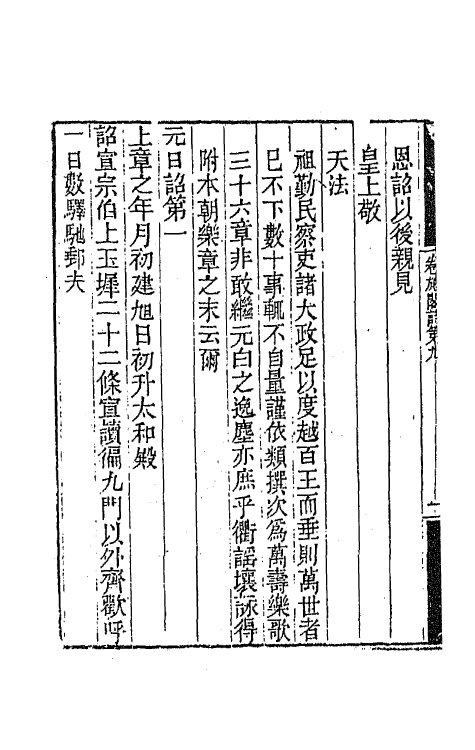 恩詔以後親見
皇上敬
天法
祖勤民察吏諸大政足以度越百王而垂則萬世者
已不下數十事輒不自量謹依類撰次爲萬壽樂歌
三十六章非敢繼元白之逸塵亦庶乎衢謡壤詠得
附本朝樂章之末云爾
元日詔第一
上章之年月初建旭日初升太和殿
詔宣宗伯上玉墀二十二條宣讀徧九門以外齊歡呼
一日數驛馳郵夫
卷施閣詩第九